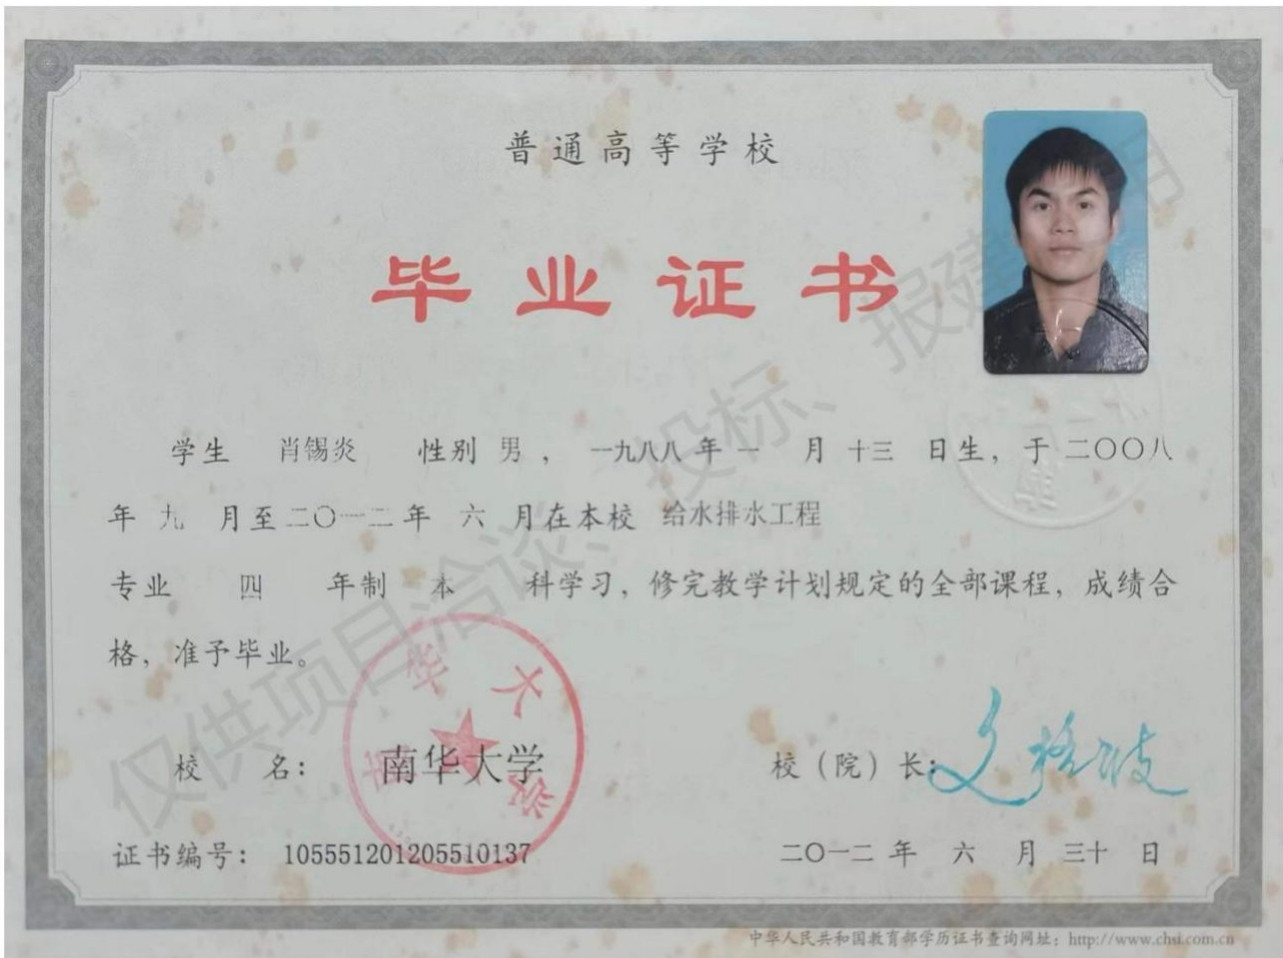 普通高等学校
毕业证书
学生 肖锡炎 性别 男 ， 一九八八 年 一 月 十三 日生，于 二〇〇八
年 九 月至 二〇一二 年 六 月在本校 给水排水工程
专业 四 年制 本 科学习，修完教学计划规定的全部课程，成绩合
格，准予毕业。
校 名： 南华大学
校（院）长：文格波
证书编号： 105551201205510137
二〇一二 年 六 月 三十 日
中华人民共和国教育部学历证书查询网址：http://www.chsi.com.cn
南华大学
仅供项目洽谈、投标、报建